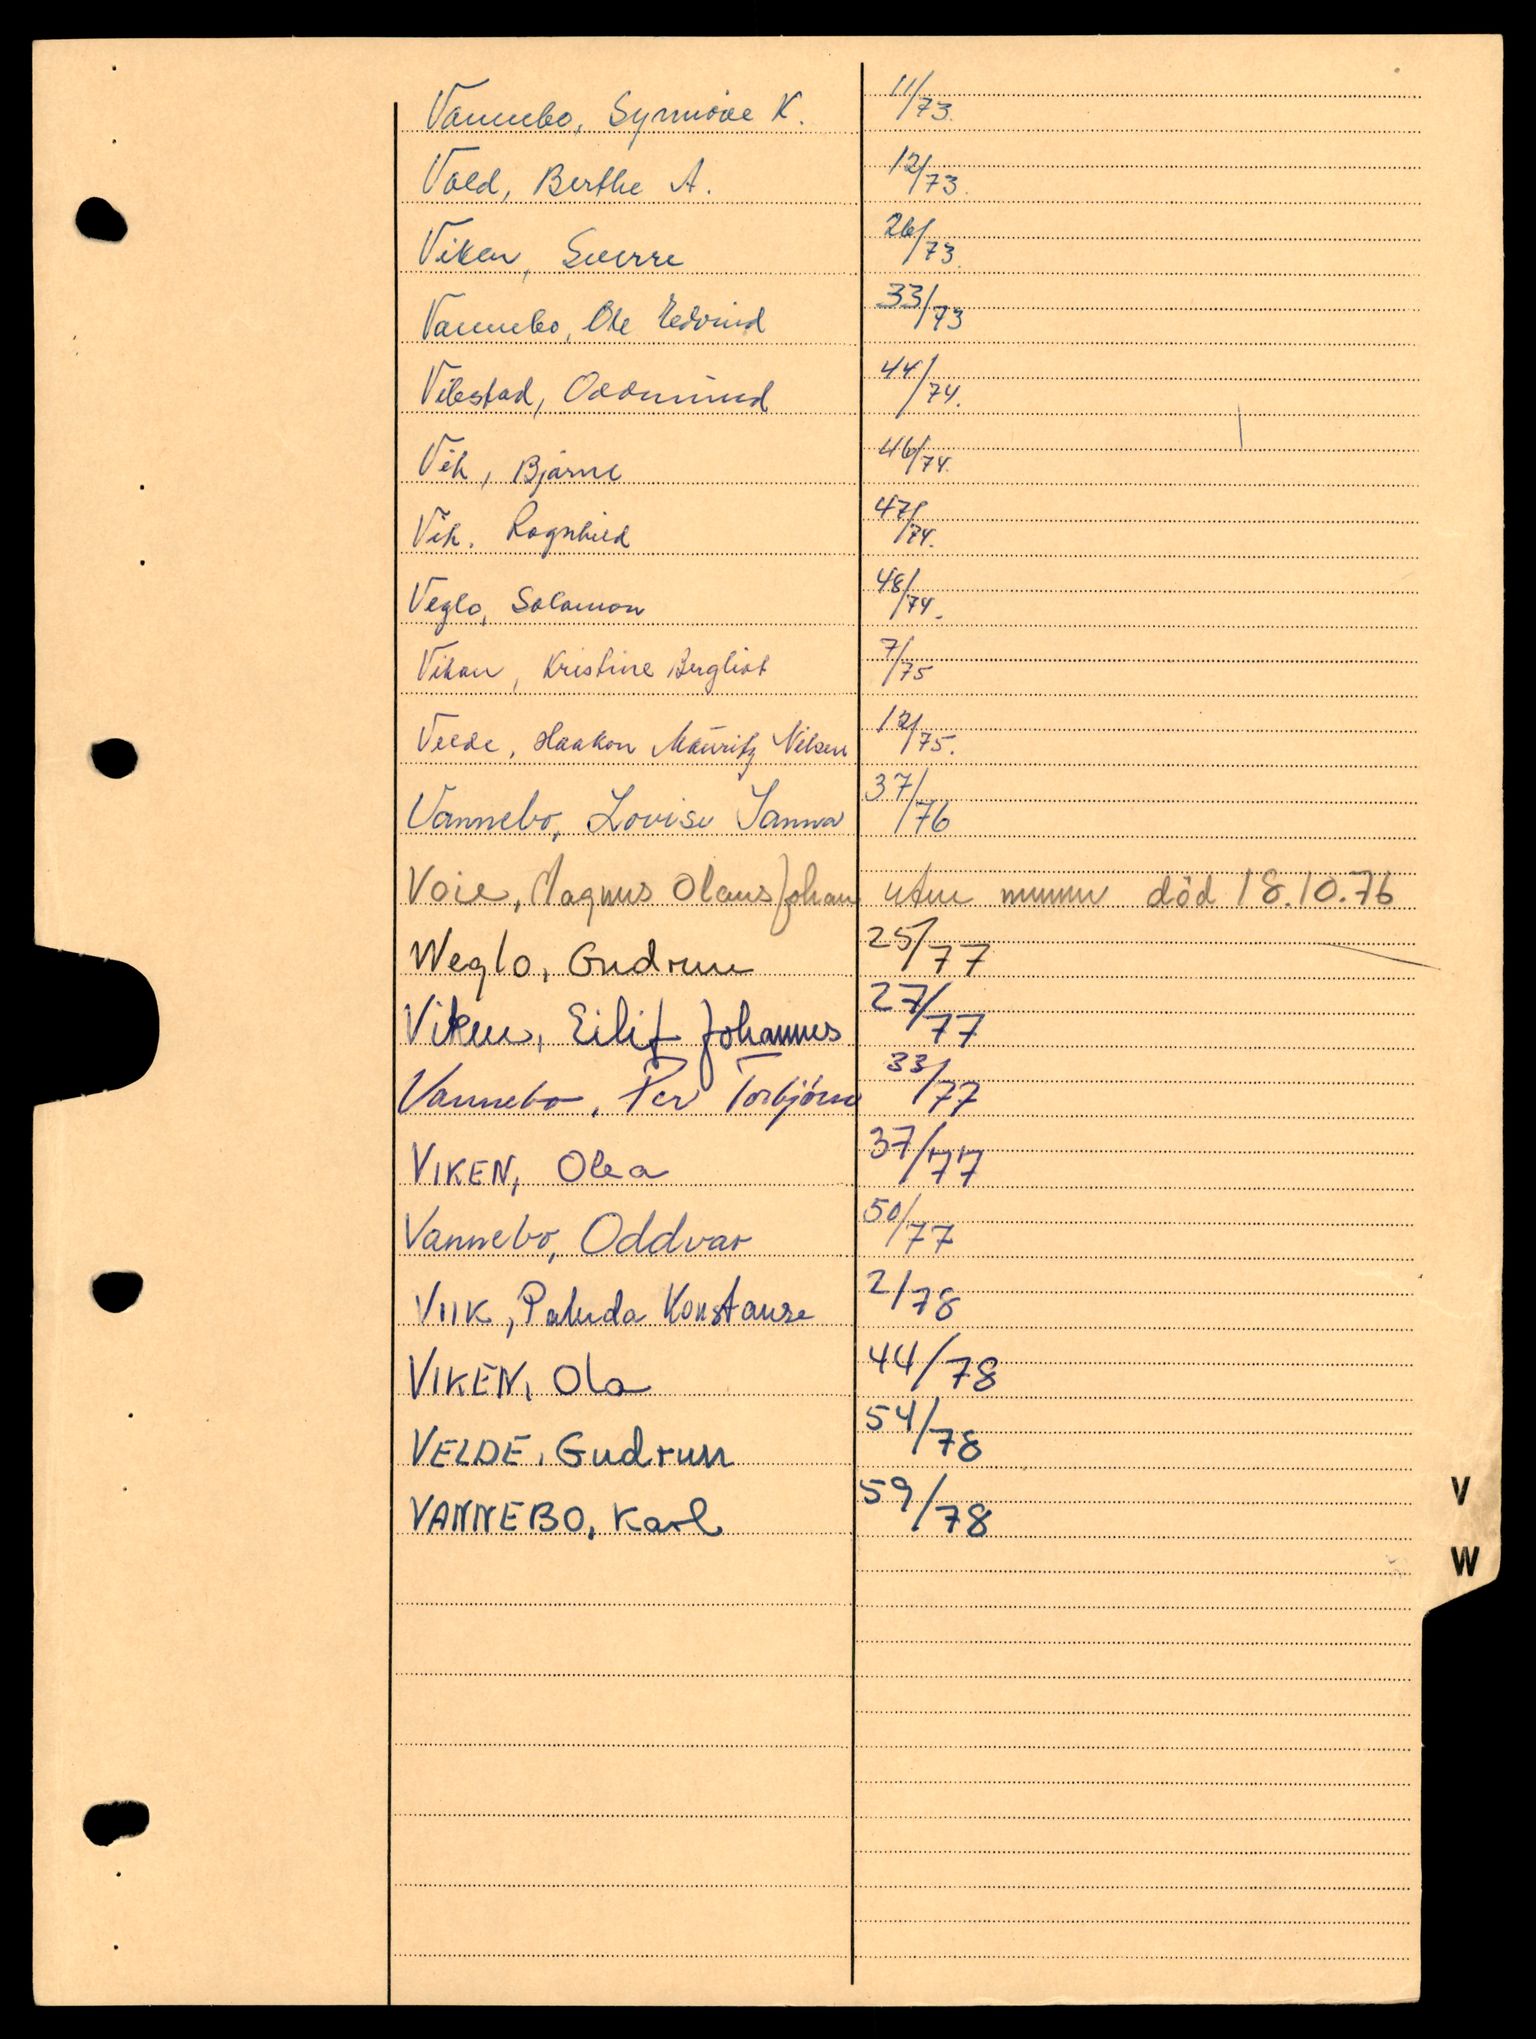 Vannebo, Synnöve K. 11/73.
Vold, Berthe A. 12/73.
Viken, Sverre 26/73.
Vannebo, Ole Edvind 33/73
Vibstad, Oddmund 44/74.
Vik, Bjarne 46/74.
Vik. Ragnhild 47/74.
Veglo, Salamon 48/74.
Vikan, Kristine Bergliot 7/75
Velde, Haakon Mauritz Nilsen 12/75.
Vannebo, Lovise Janna 37/76
Voie, Magnus Olaus Johan uten nummer död 18.10.76
Weglo, Gudrun 25/77
Viken, Eilif Johannes 27/77
Vannebo, Per Torbjörn 33/77
VIKEN, Olea 37/77
Vannebo, Oddvar 50/77
VIIK, Konstanse 2/78
VIKEN, Ola 44/78
VELDE, Gudrun 54/78
VANNEBO, Karl 59/78
V
W